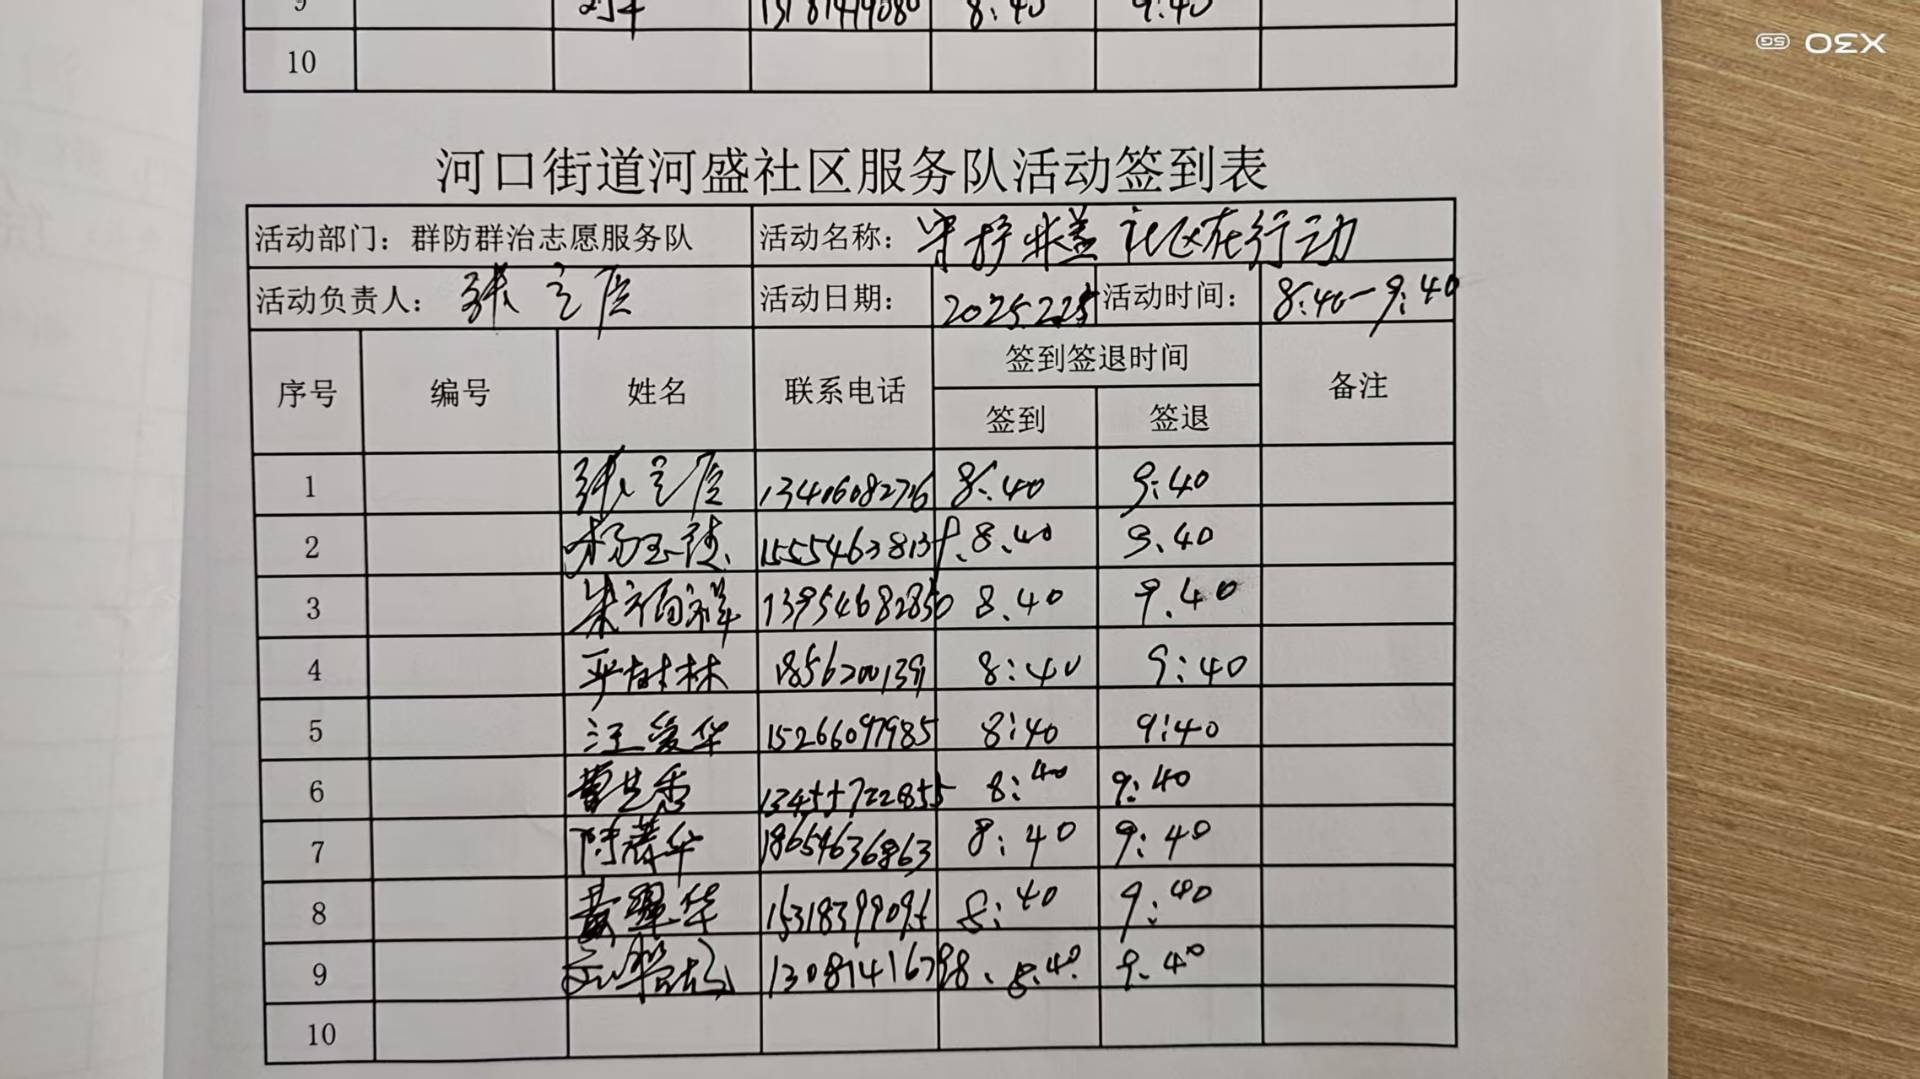 9 13181419080 8:40 9:40
10
X30 5G
河口街道河盛社区服务队活动签到表
活动部门：群防群治志愿服务队 活动名称：守护井盖 社区在行动
活动负责人：张 活动日期：2025.2.25 活动时间：8:40-9:40
序号 编号 姓名 联系电话 签到签退时间 备注
签到 签退
1 张 13406082716 8:40 9:40
2 杨玉 8.40 9.40
3 朱福祥 13954682850 8.40 9.40
4 严树林 8:40 9:40
5 汪爱华 15266097985 8:40 9:40
6 曹 13455722855 8:40 9:40
7 华 18654636863 8:40 9:40
8 黄翠华 15318399095 8:40 9:40
9 13081416798 8.40 9.40
10